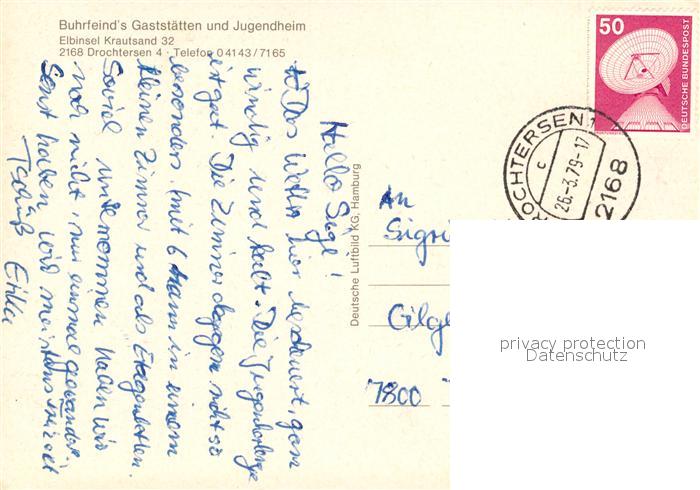 Buhrfeind's Gaststätten und Jugendheim
Elbinsel Krautsand 32
2168 Drochtersen 4 · Telefon 0 41 43 / 71 65
50
DEUTSCHE BUNDESPOST
DROCHTERSEN 1
c
26.-3.79-17
2168
Hallo Sigi!
Das Wetter hier ganz
windig und kalt. Die Jugendherberge
ist gut. Die Zimmer dagegen nicht so
besonders (mit 6 Mann in einem
kleinen Zimmer und als Etagenbetten.
Soviel unternommen haben wir
noch nicht, nur einmal gewandert.
Sonst haben wir meistens Freizeit
Tschüß Erika
Deutsche Luftbild KG, Hamburg
An
Sigri
Gilge
7800
privacy protection
Datenschutz